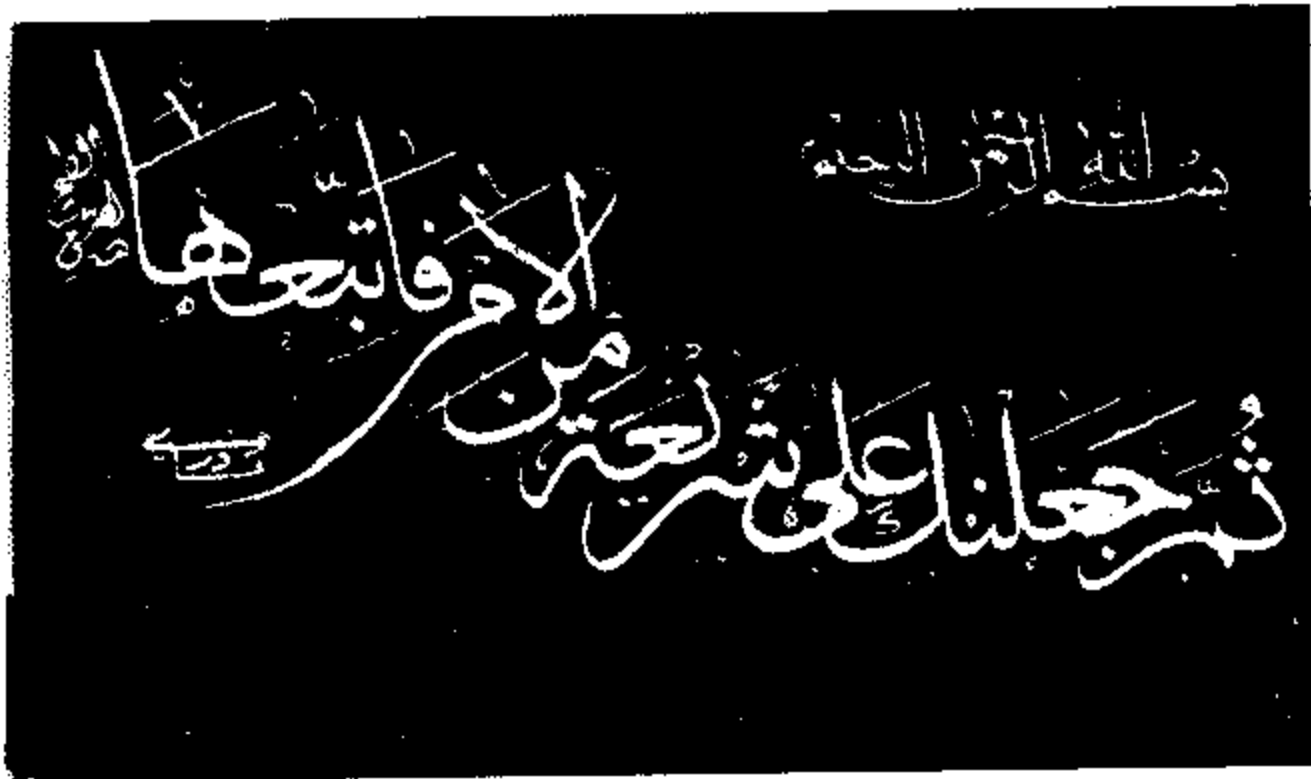 بسم الله الرحمن الرحيم
ثم جعلنك على شريعة من الامر فاتبعها